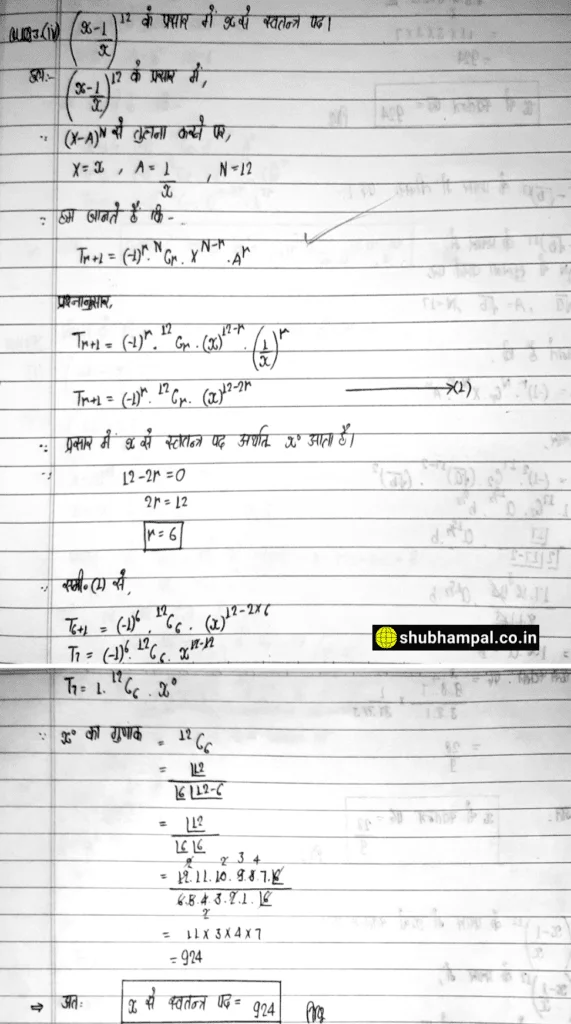 (iv) (x-1/x)^12 के प्रसार में x से स्वतन्त्र पद।
हल:- (x-1/x)^12 के प्रसार में,
∵ (X-A)^N से तुलना करने पर,
X = x , A = 1/x , N = 12
∵ हम जानते हैं कि -
Tr+1 = (-1)^r . ^N Cr . X^N-r . A^r
प्रश्नानुसार,
Tr+1 = (-1)^r . ^12 Cr . (x)^12-r . (1/x)^r
Tr+1 = (-1)^r . ^12 Cr . (x)^12-2r → (1)
∵ प्रसार में x से स्वतन्त्र पद अर्थात x° आता है।
∵ 12-2r = 0
2r = 12
r = 6
∵ समी० (1) से,
T6+1 = (-1)^6 . ^12 C6 . (x)^12-2×6
shubhampal.co.in
T7 = (-1)^6 . ^12 C6 . x^12-12
T7 = 1 . ^12 C6 . x°
∵ x° का गुणांक = ^12 C6
= |12 / |6 |12-6
= |12 / |6 |6
2 2 3 4
= 12.11.10.9.8.7.|6 / 6.5.4.3.2.1.|6
2
= 11×3×4×7
= 924
⇒ अतः x से स्वतन्त्र पद = 924